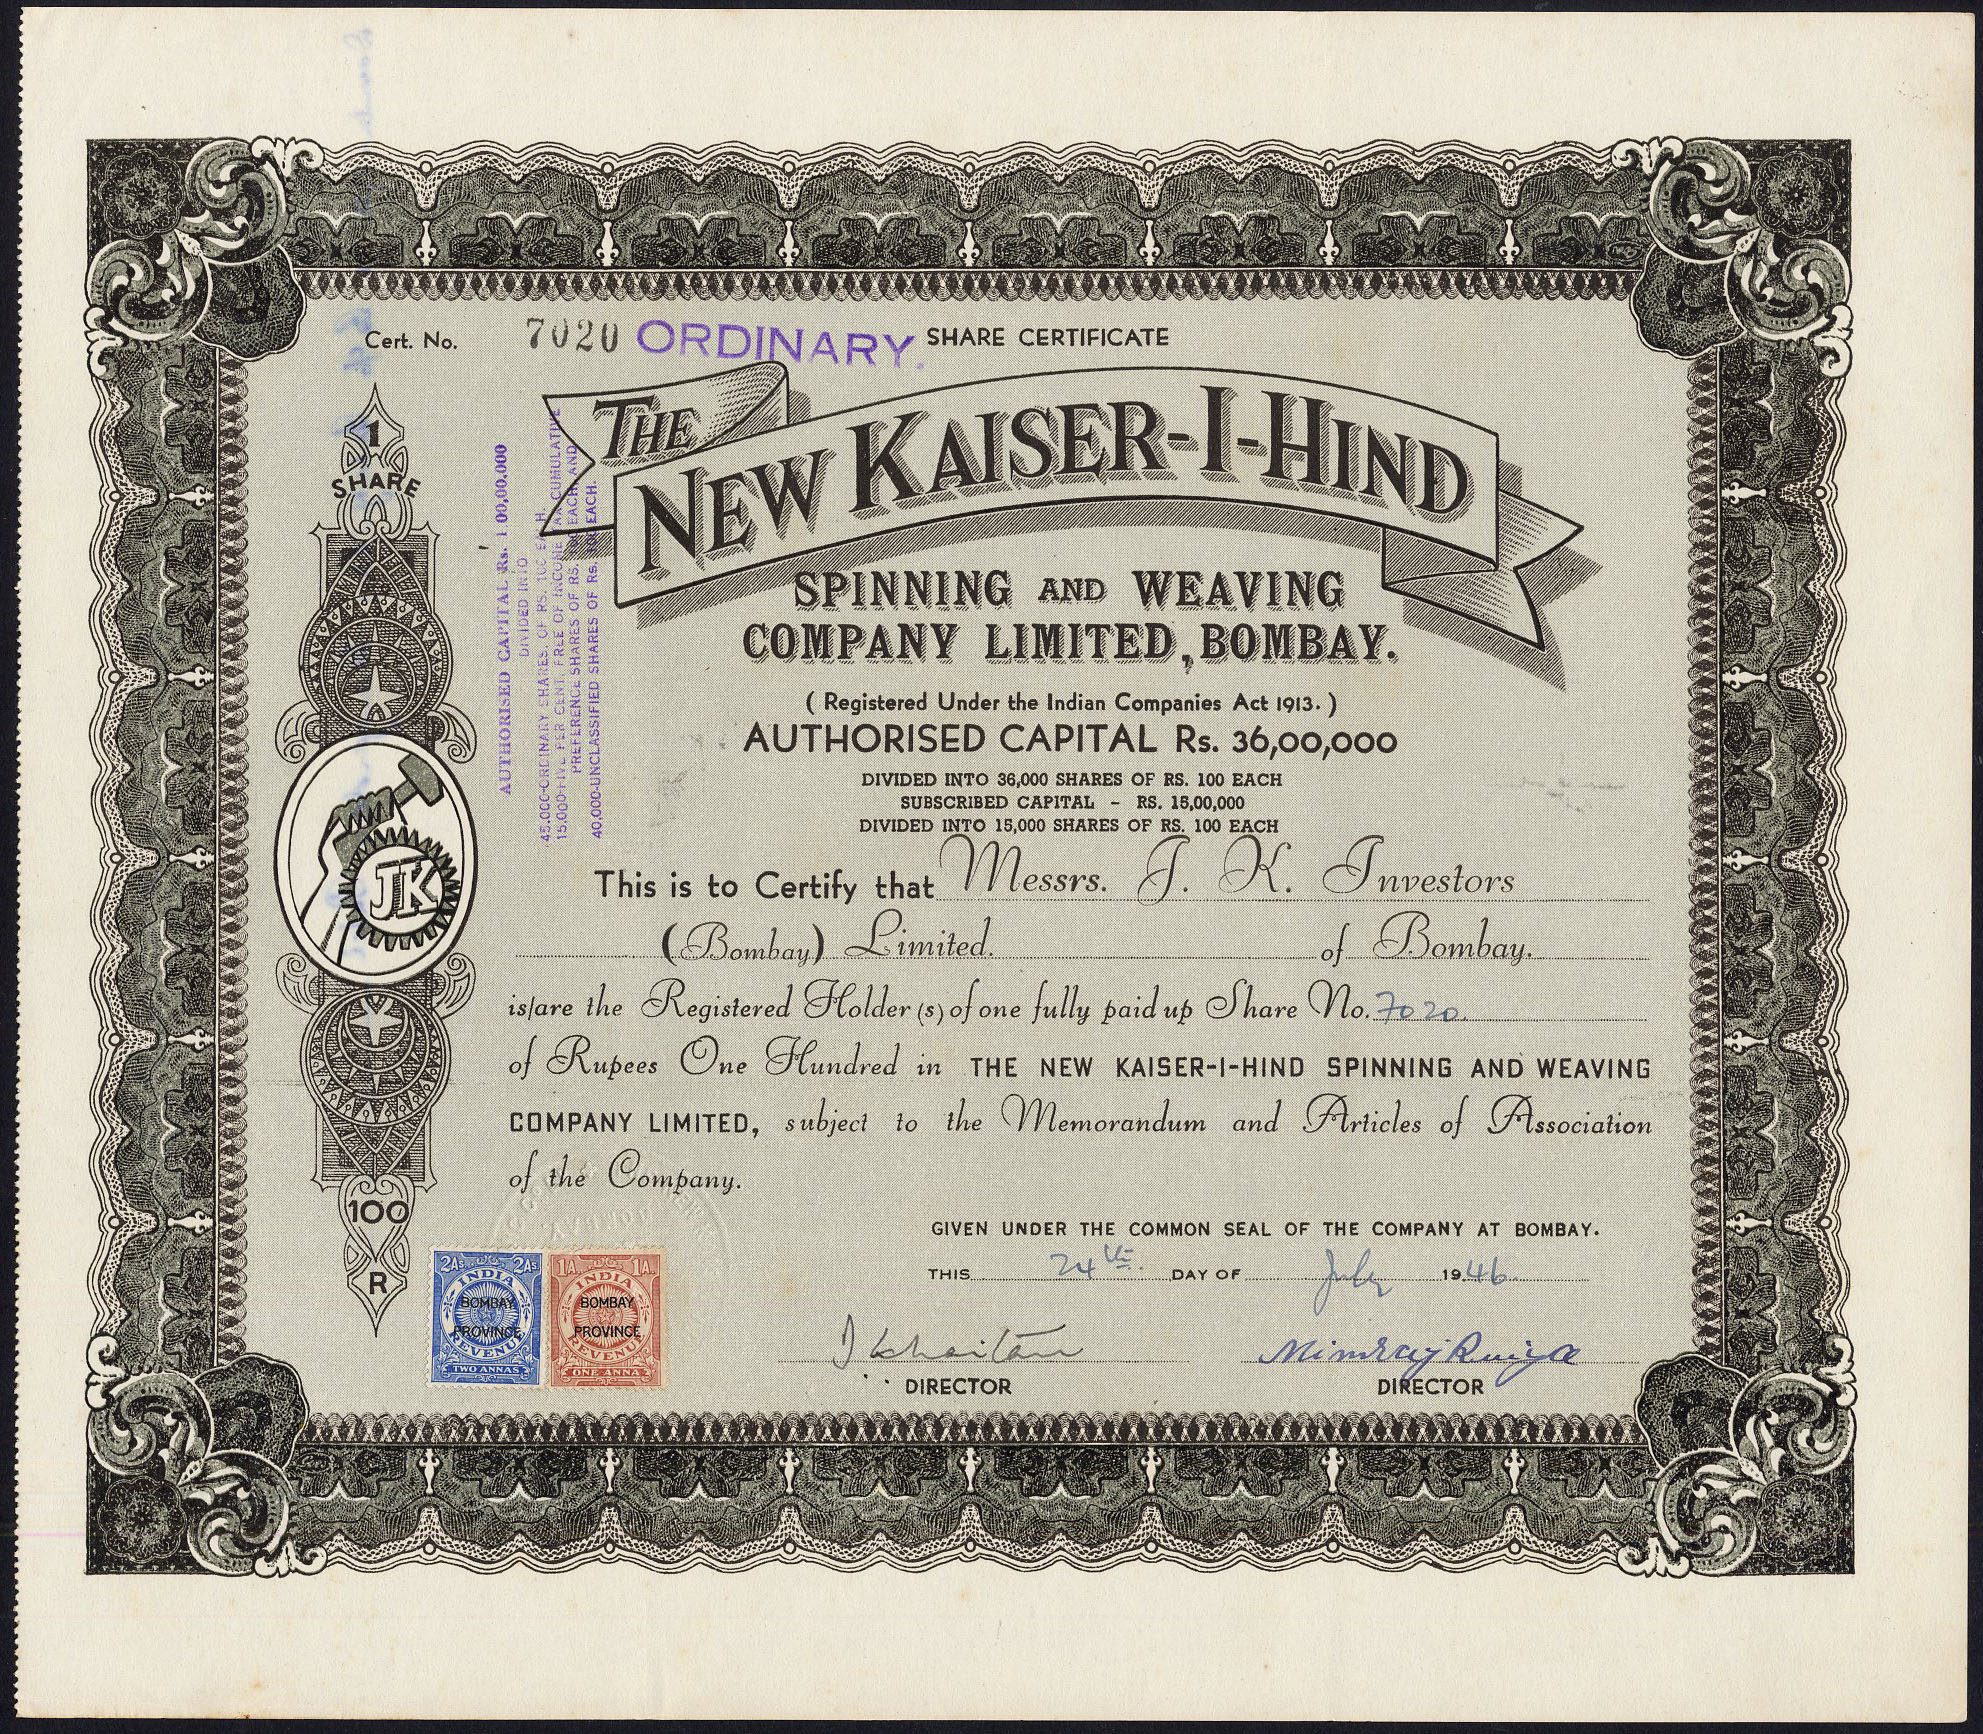 Cert. No. 7020 ORDINARY. SHARE CERTIFICATE
1
SHARE
THE
NEW KAISER-I-HIND
SPINNING AND WEAVING
COMPANY LIMITED, BOMBAY.
( Registered Under the Indian Companies Act 1913. )
AUTHORISED CAPITAL Rs. 36,00,000
DIVIDED INTO 36,000 SHARES OF RS. 100 EACH
SUBSCRIBED CAPITAL - RS. 15,00,000
DIVIDED INTO 15,000 SHARES OF RS. 100 EACH
AUTHORISED CAPITAL Rs. 1,00,00,000
DIVIDED INTO
45,000-ORDINARY SHARES. OF RS. 100 EACH.
15,000-FIVE PER CENT. FREE OF INCOME TAX CUMULATIVE
PREFERENCE SHARES OF RS. 100 EACH. AND
40,000-UNCLASSIFIED SHARES OF Rs. 100 EACH.
JK
This is to Certify that Messrs. J. K. Investors
(Bombay) Limited. of Bombay.
is/are the Registered Holder (s) of one fully paid up Share No. 7020.
of Rupees One Hundred in THE NEW KAISER-I-HIND SPINNING AND WEAVING
COMPANY LIMITED, subject to the Memorandum and Articles of Association
of the Company.
100
R
GIVEN UNDER THE COMMON SEAL OF THE COMPANY AT BOMBAY.
THIS 24th DAY OF July 1946.
2As. 2As.
INDIA
BOMBAY
PROVINCE
REVENUE
TWO ANNAS
1A. 1A.
INDIA
BOMBAY
PROVINCE
REVENUE
ONE ANNA
DIRECTOR
DIRECTOR